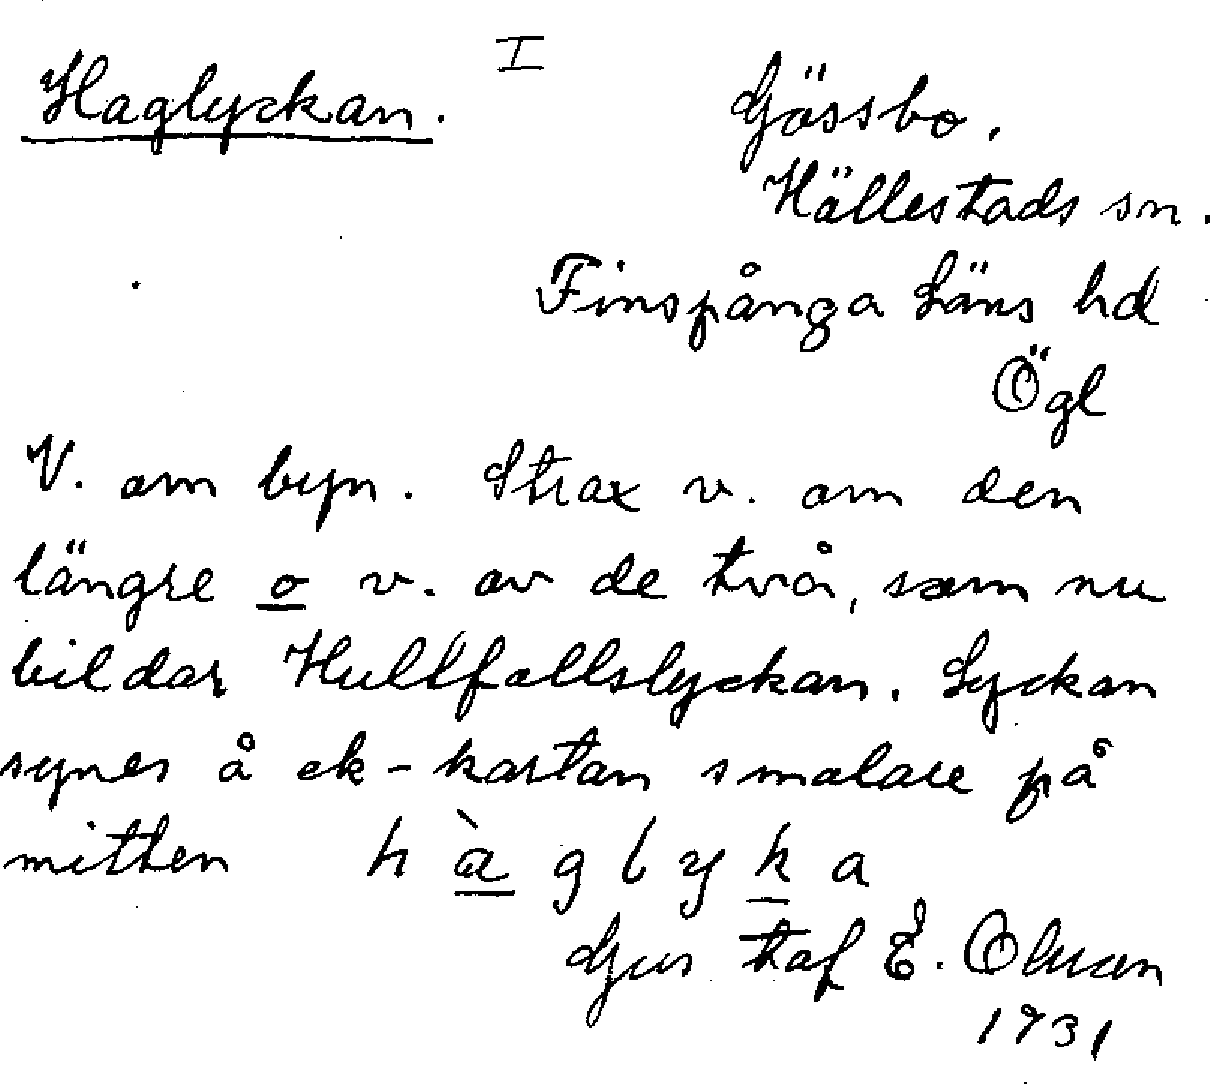 I
Haglyckan. Gässbo.
Hällestads sn.
Finspånga Läns hd
Ögl
V. om byn. Strax v. om den
längre o v. av de två, som nu
bildar Hultfallslyckan. Lyckan
synes å ek-kartan smalare på
mitten hàglyka
Gustaf E. Olsson
1931